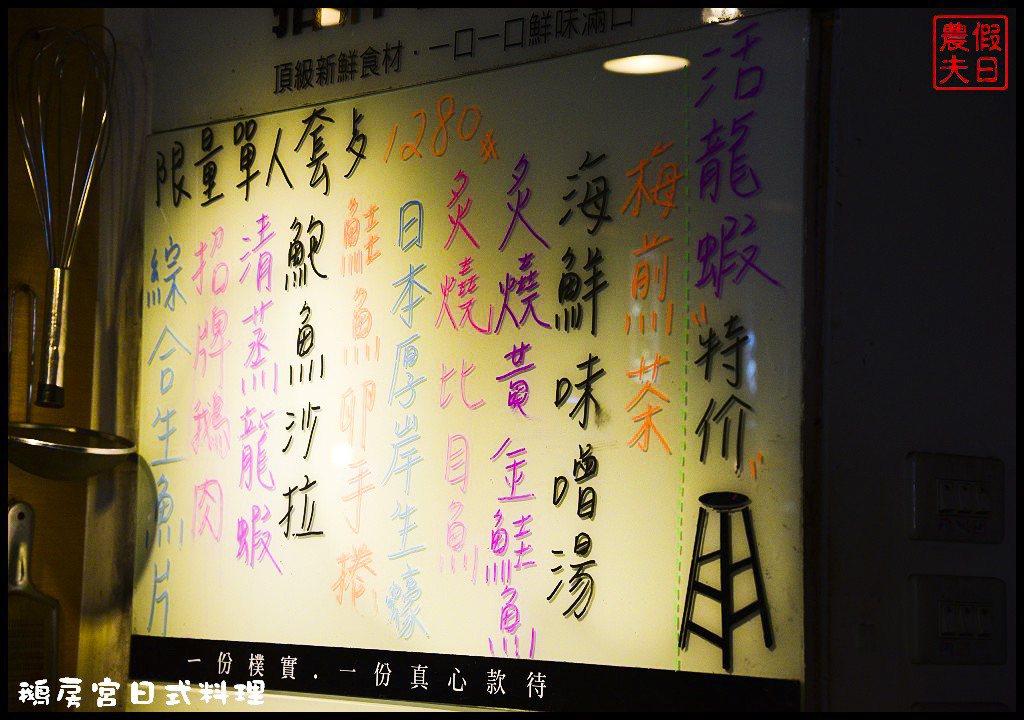 頂級新鮮食材．一口一口鮮味滿口
限量單人套
1280
綜合生魚片
招牌鵝肉
清蒸龍蝦
鮑魚沙拉
鮭魚卵手捲
日本厚岸生蠔
炙燒比目魚
炙燒黃金鮭魚
海鮮味噌湯
梅煎茶
活龍蝦"特价"
一份樸實．一份真心款待
鵝房宮日式料理
假日農夫